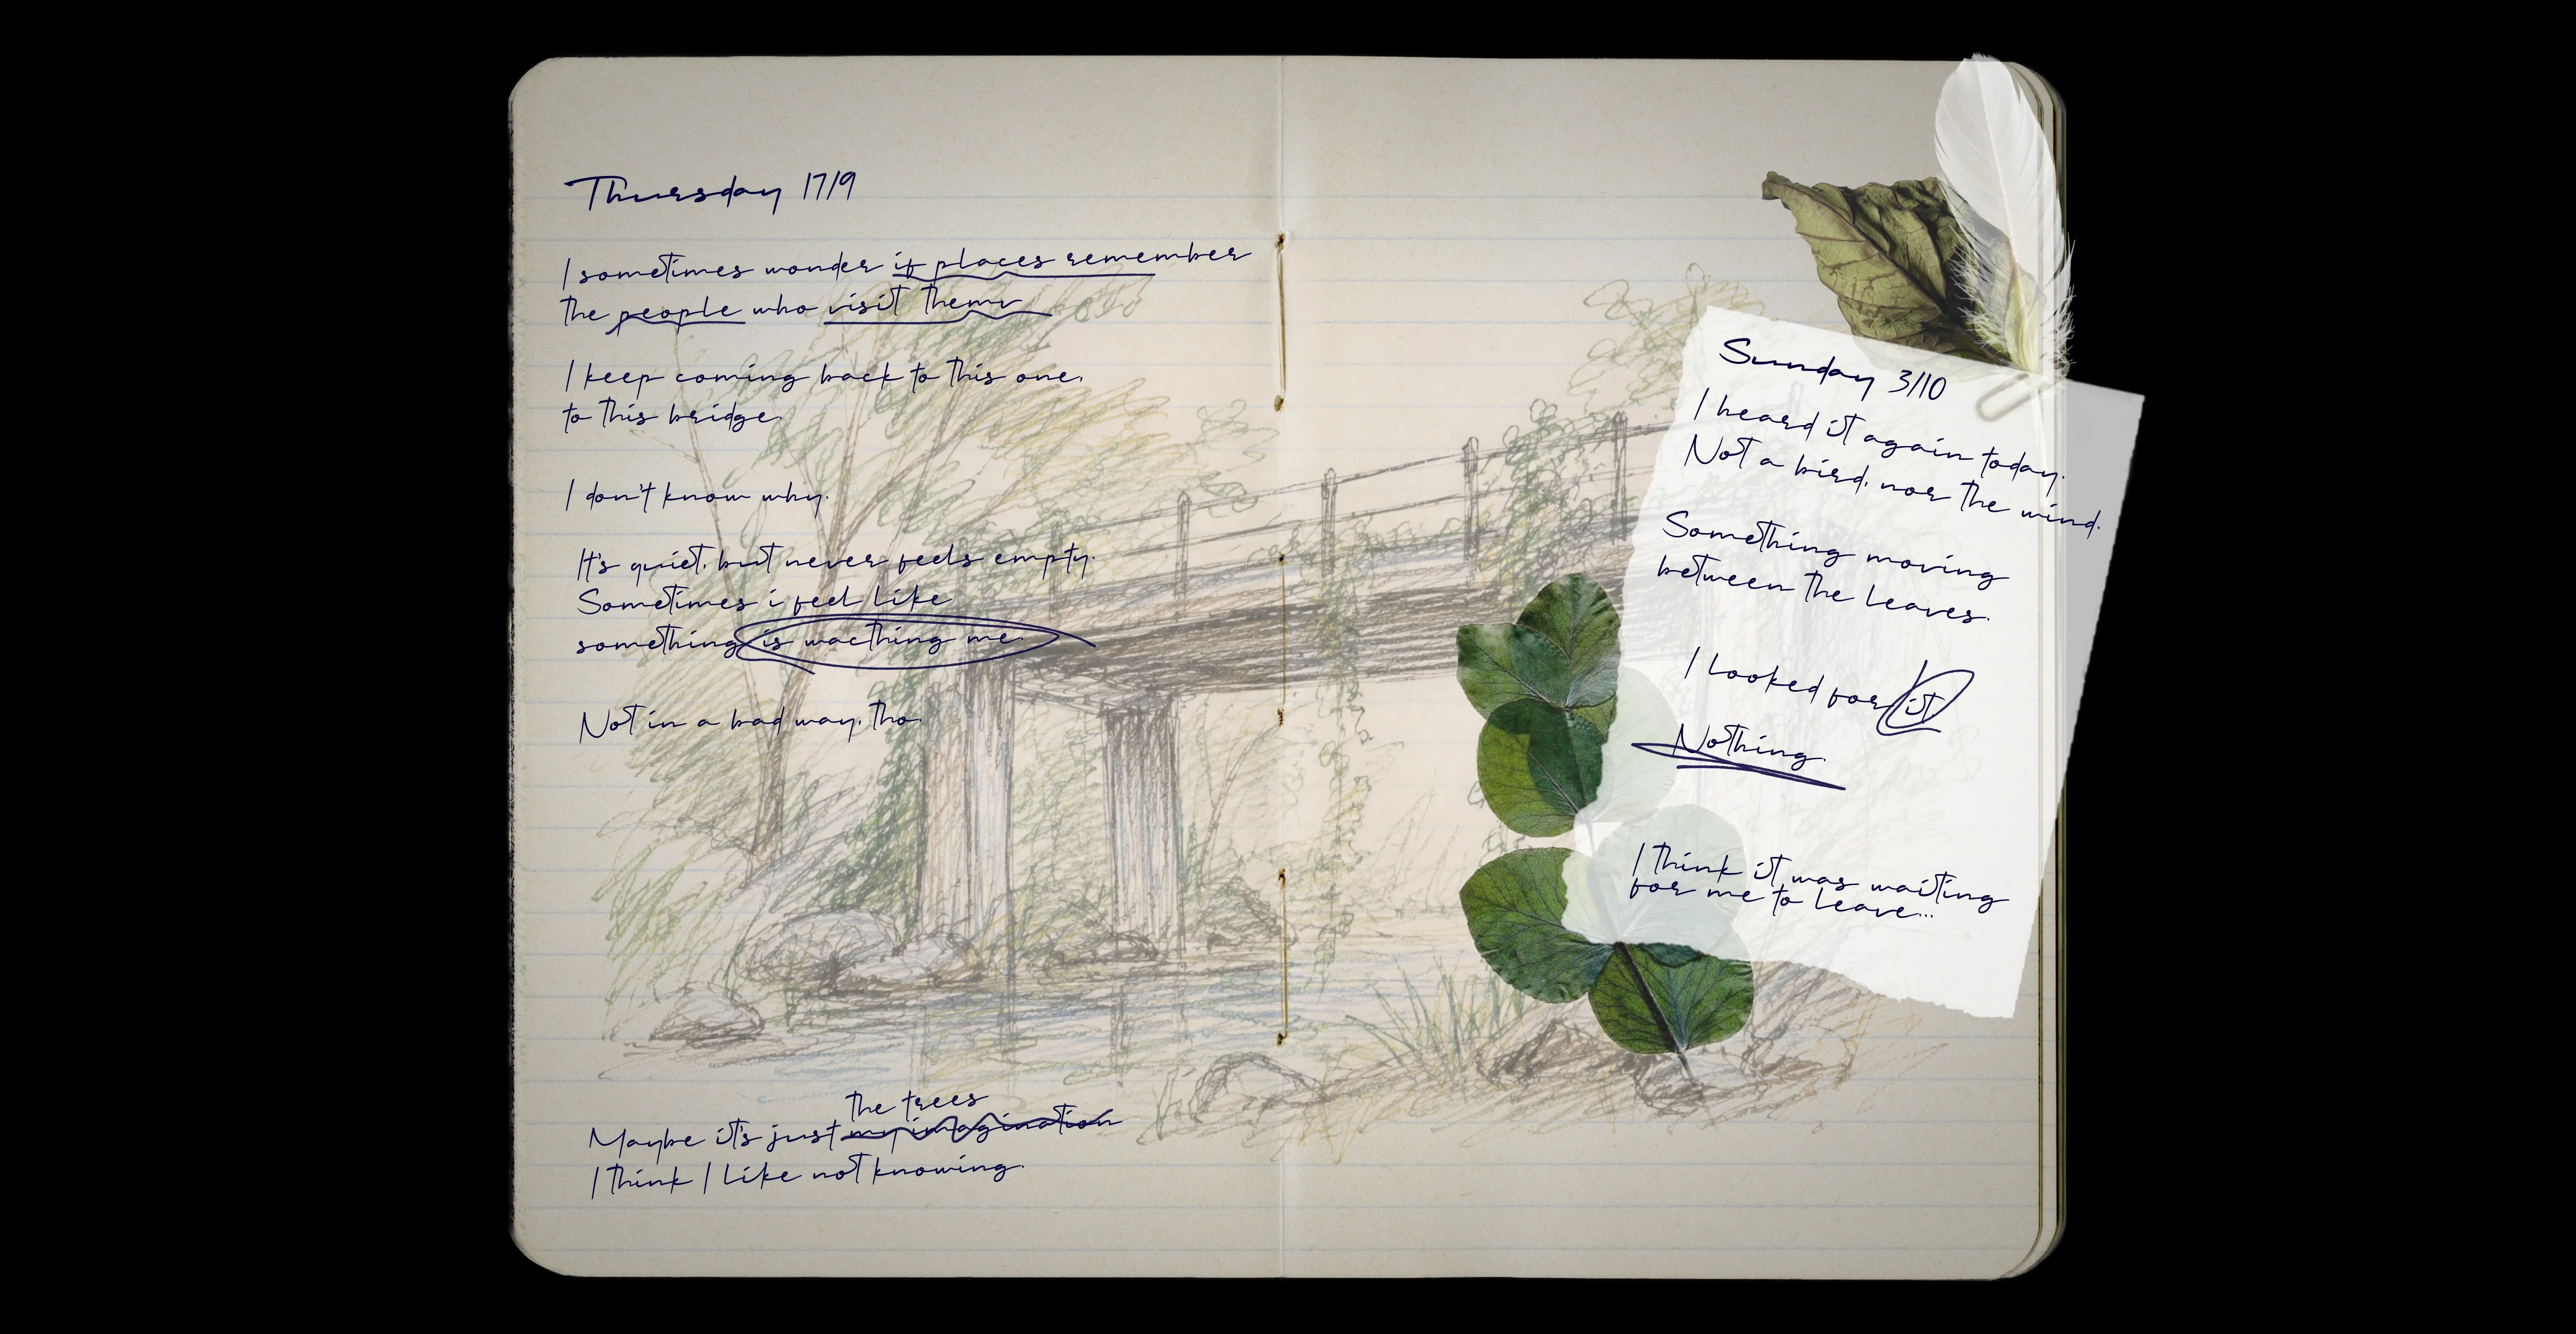 Thursday 17/9
I sometimes wonder if places remember
the people who visit them
I keep coming back to this one,
to this bridge.
I don't know why.
It's quiet, but never feels empty.
Sometimes i feel like
something is wacthing me.
Not in a bad way, tho.
the trees
Maybe it's just my imagination
I think I like not knowing.
Sunday 3/10
I heard it again today.
Not a bird, nor the wind.
Something moving
between the leaves.
I looked for it
Nothing.
I think it was waiting
for me to leave...